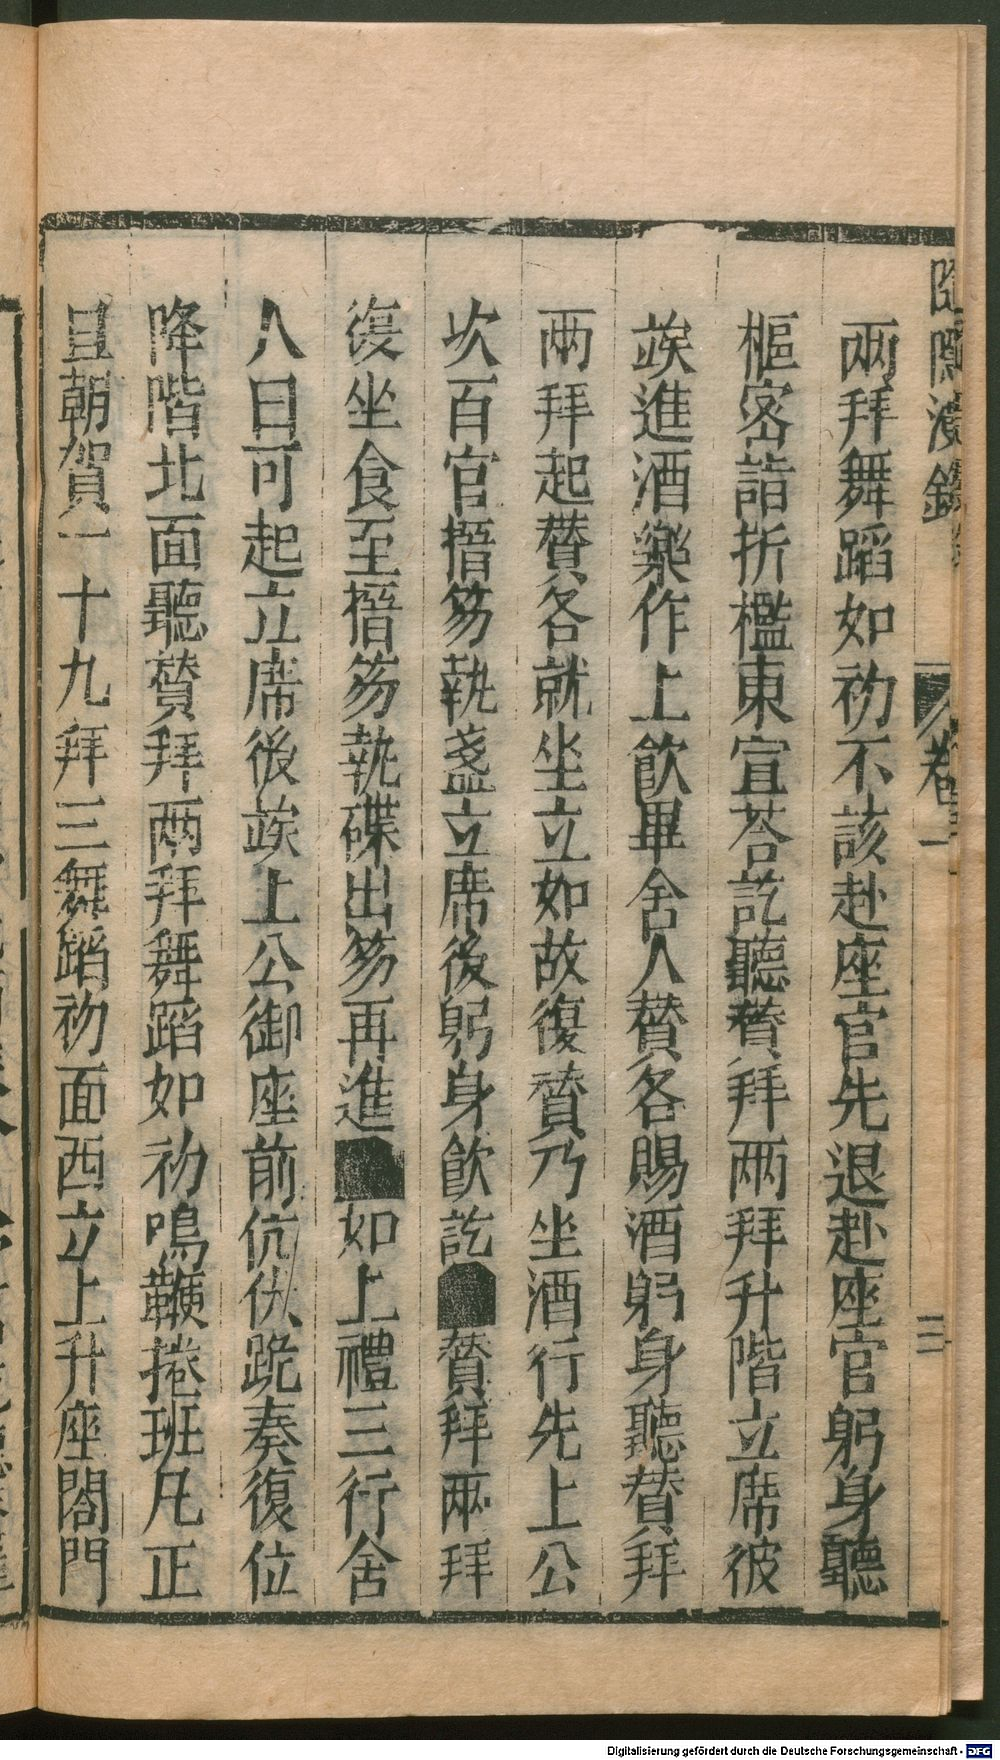 兩拜舞蹈如初不該赴座官先退赴座官躬身聽
樞密詣折檻東宣荅訖聽賛拜兩拜升階立席彼
竢進酒樂作上飮畢舍人賛各賜酒躬身聽賛拜
兩拜起賛各就坐立如故復賛乃坐酒行先上公
次百官搢笏執盞立席後躬身飮訖賛拜兩拜
復坐食至搢笏執碟出笏再進如上禮三行舍
人曰可起立席後竢上公御座前俯伏跪奏復位
降階北面聽賛拜兩拜舞蹈如初鳴鞭捲班凡正
旦朝賀一十九拜三舞蹈初面西立上升座閤門
卷一
三
Digitalisierung gefördert durch die Deutsche Forschungsgemeinschaft - DFG